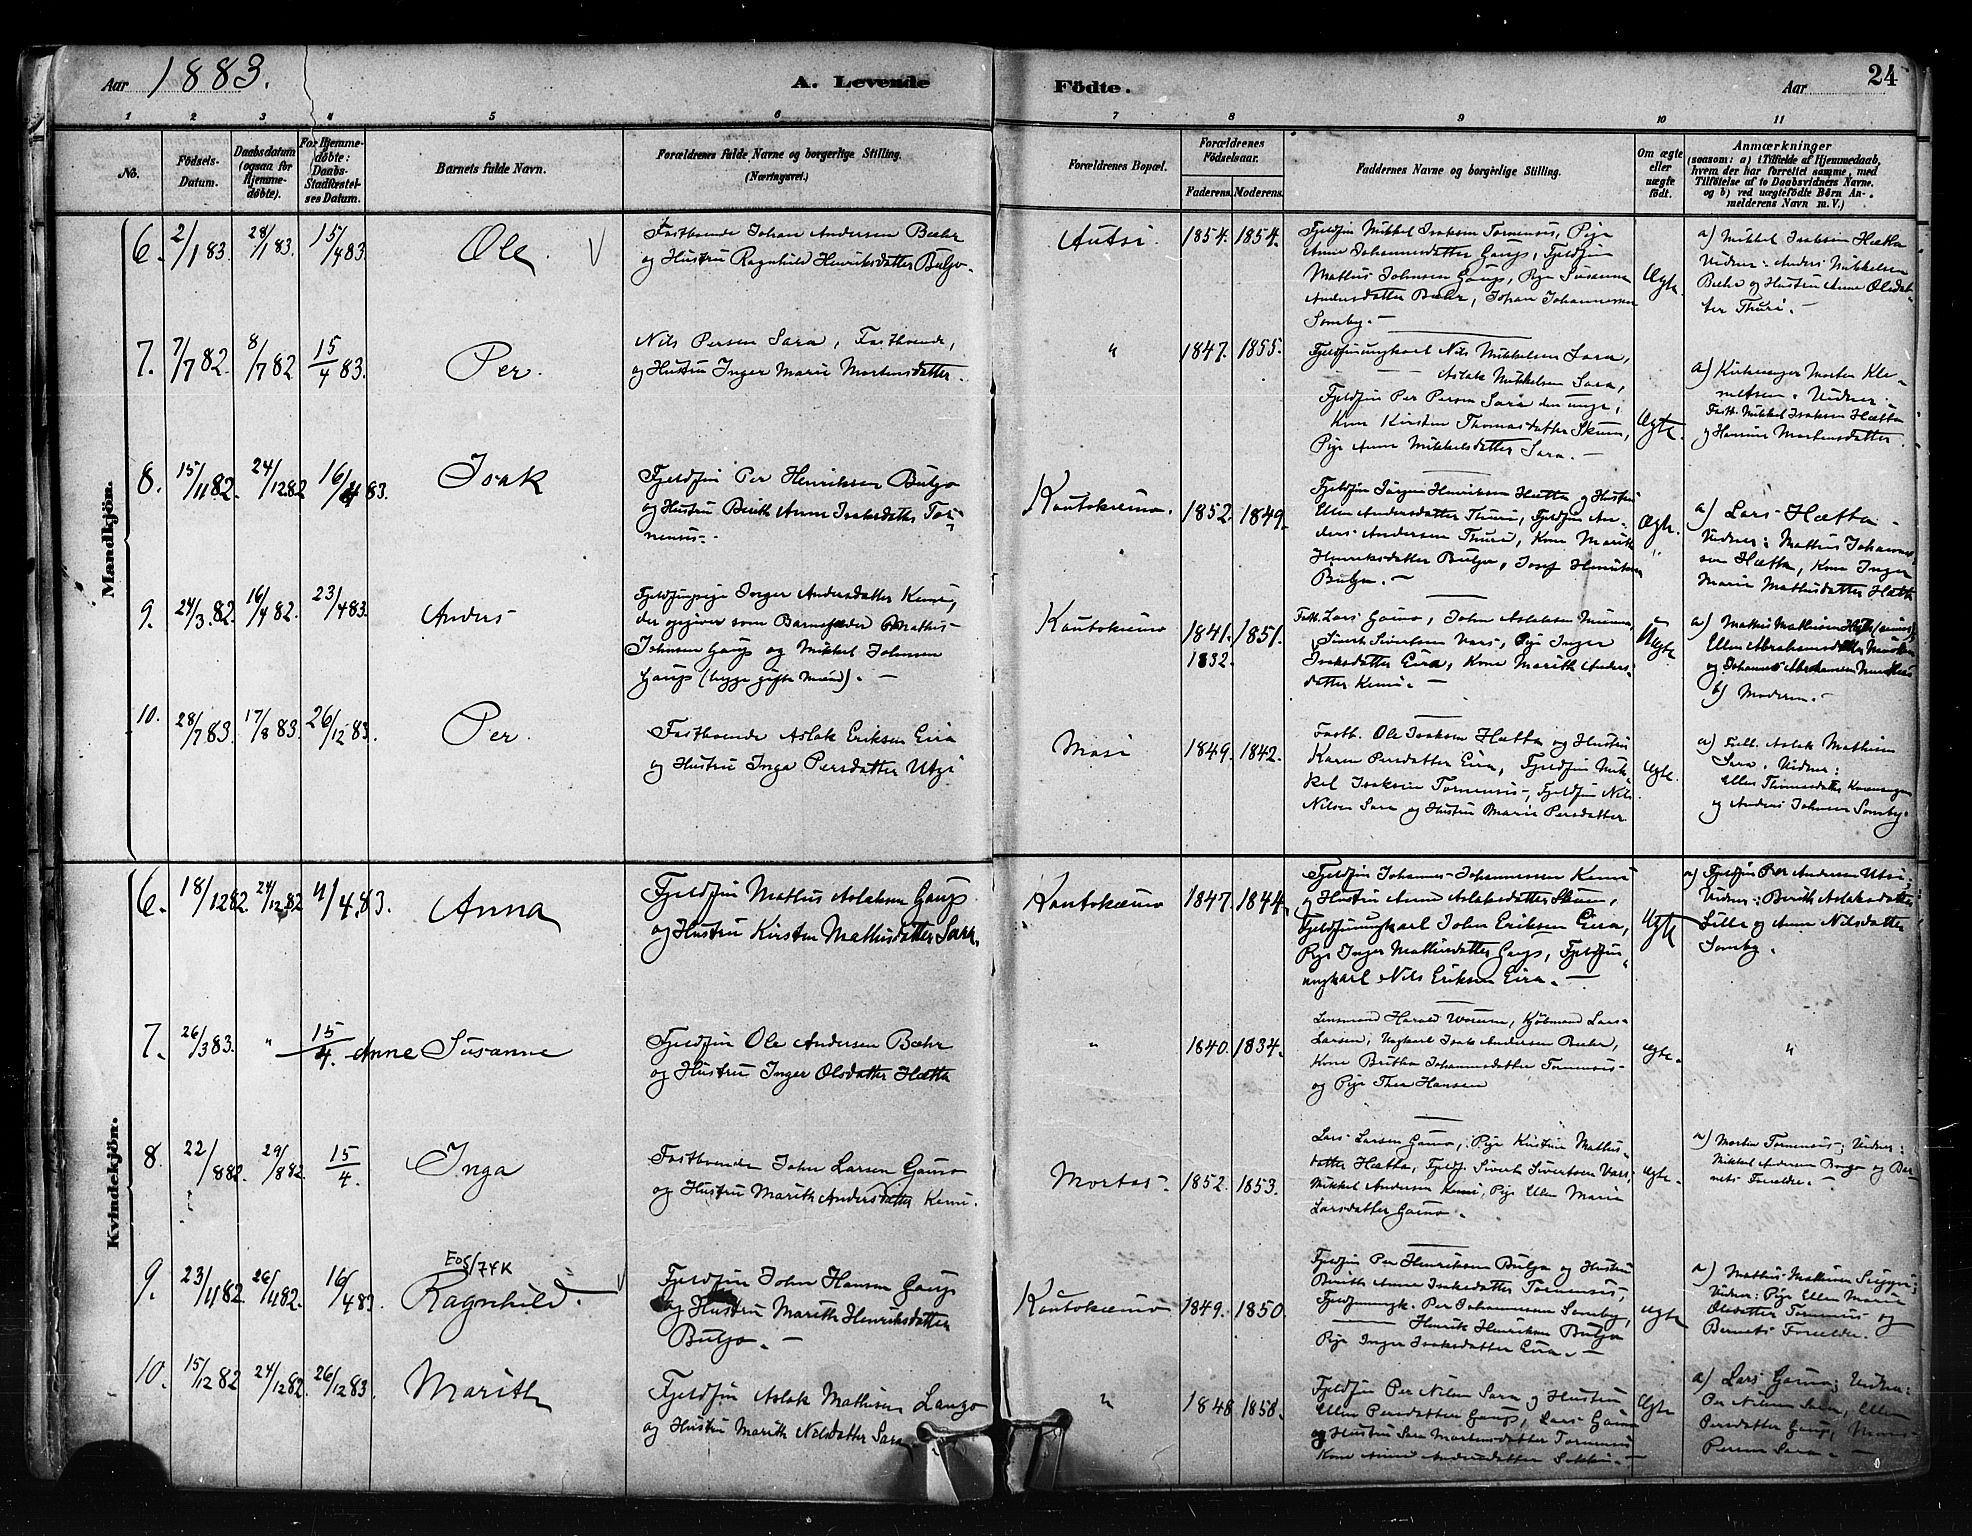 Aar 1883.
A. Levende Födte.
Aar
24
1 2 3 4 5 6 7 8 9 10 11
No.
Födsels-Datum.
Daabsdatum (ogsaa for Hjemmedöbte).
For Hjemmedöbte: Daabs-Stadfæstelses Datum.
Barnets fulde Navn.
Forældrenes fulde Navne og borgerlige Stilling.
(Næringsvei.)
Forældrenes Bopæl.
Forældrenes Födselsaar.
Faderens. Moderens.
Faddernes Navne og borgerlige Stilling.
Om ægte eller uægte födt.
Anmærkninger
(saasom: a) i Tilfælde af Hjemmedaab, hvem der har forrettet samme, med Tilföielse af to Daabsvidners Navne. og b) ved uægtefödte Börn Anmelderens Navn m. V.)
Mandkjön.
6. 2/1 83. 28/1 83. 15/4 83. Ole. V
Fastboende Johan Andersen Bæhr
og Hustru Ragnhild Henriksdatter Buljo.
Autsi. 1854. 1854.
Fjeldfin Mikkel Isaksen Tornensis, Pige
Anne Johannesdatter Gaup, Fjeldfin
Mathis Johnsen Gaup, Pige Susanna
Andersdatter Bæhr, Johan Johannessen
Somby.
Ægte.
a) Mikkel Isaksen Hætta
Vidner: Anders Mikkelsen
Bæhr og Hustru Anne Olsdat-
ter Thuri.
7. 7/7 82. 8/7 82 15/4 83. Per.
Nils Persen Sara, Fastboende,
og Hustru Inger Marie Mortensdatter.
" 1847. 1855.
Fjeldfinungkarl Nils Mikkelsen Sara,
— Aslak Mikkelsen Sara,
Fjeldfin Per Persen Sara den unge,
Kone Kirsten Thomasdatter Skum,
Pige Anne Mikkelsdatter Sara.
Ægte.
a) Kirkesanger Morten Kle-
metsen. Vidner:
Fastb. Mikkel Isaksen Hætta
og Mortensdatter.
8. 15/11 82. 24/12 82 16/4 83. Isak
Fjeldfin Per Henriksen Buljo
og Hustru Birith Anne Isaksdatter Tor-
nensis.
Kautokeino. 1852. 1849.
Fjeldfin Jörgen Henriksen Hætta og Hustru
Ellen Andersdatter Thuri, Fjeldfin An-
ders Andersen Thuri, Kone Marith
Henriksdatter Buljo, Josef Henriksen
Buljo.
Ægte.
a) Lars Hætta
Vidner: Mathis Johannes-
sen Hætta, Kone Inger
Marie Mathisdatter Hætta
9. 24/3 82. 16/4 82. 23/4 83. Anders
Fjeldfinpige Inger Andersdatter Kemi,
der opgiver som Barnefader Mathis
Johnsen Gaup og Mikkel Johnsen
Gaup (begge gifte Mænd).
Kautokeino 1841. 1832. 1851.
Fastb. Lars Gaino, John Aslaksen
Sivert Sivertsen Vars, Pige Inger
Isaksdatter Eira, Kone Marith Anders-
datter Kemi.
Uægte.
a) Mathis Mathisen Hætta
Ellen Abrahamsdatter
og Johannes Abrahamsen
b) Moderen.
10. 28/7 83. 17/8 83. 26/12 83. Per.
Fastboende Aslak Eriksen Eira
og Hustru Inga Persdatter Utsi
Masi 1849. 1842.
Fastb. Ole Isaksen Hætta og Hustru
Karen Persdatter Eira, Fjeldfin Mik-
kel Isaksen Tornensis, Fjeldfin Nils
Nilsen Sara og Hustru Marie Persdatter
Ægte.
a) Aslak Mathisen
Sara, Vidner:
Ellen Thomasdatter
og Anders Johnsen Somby.
Kvindekjön.
6. 18/12 82. 24/12 82 4/4 83. Anna
Fjeldfin Mathis Aslaksen Gaup
og Hustru Kirsten Mathisdatter Sara.
Kautokeino 1847. 1844.
Fjeldfin Johannes Johannessen Kemi
og Hustru Anne Aslaksdatter Skum,
Fjeldfinungkarl John Eriksen Eira,
Pige Inger Mathisdatter Gaup, Fjeldfin-
ungkarl Nils Eriksen Eira.
Ægte
a) Fjeldfin Per Andersen Utsi,
Vidner: Berith Aslaksdatter
og Anne Nilsdatter
Somby.
7. 26/3 83. " 15/4. Anne Susanne
Fjeldfin Ole Andersen Bæhr
og Hustru Inger Olsdatter Hætta
" 1840. 1834.
Lensmand Harald Worum, Kjöbmand Lars
Larsen, Ungkarl Isak Andersen Bæhr,
Kone Britha Johannesdatter Tornensis
og Pige Thea Hansen
Ægte. "
8. 22/8 82. 29/8 82 15/4. Inga
Fastboende John Larsen Gaino
og Hustru Marith Andersdatter Kemi.
Mortas 1852. 1853.
Lars Larsen Gaino, Pige Kristine Mathis-
datter Hætta, Fjeldf. Sivert Sivertsen Vars,
Mikkel Andersen Kemi, Pige Ellen Marie
Larsdatter Gaino.
Ægte.
a) Morten Tornensis; Vidner:
Mikkel Andersen Bongo og Bar-
nets Forældre.
9. 23/11 82. 26/11 82. 16/4 83. EOS/74K
Ragnhild. V
Fjeldfin John Hansen Gaup
og Hustru Marith Henriksdatter
Buljo.
Kautokeino 1849. 1850.
Fjeldfin Per Henriksen Buljo og Hustru
Birith Anne Isaksdatter Tornensis,
Fjeldfinungk. Per Johannessen Somby,
— Henrik Henriksen Buljo
Pige Inger Isaksdatter Eira.
Ægte
a) Mathis Mathisen
Vidner: Pige Ellen Marie
Olsdatter Tornensis og
Barnets Forældre.
10. 15/12 82 24/12 82. 26/12 83. Marith
Fjeldfin Aslak Mathisen Lango
og Hustru Marith Nilsdatter Sara
" 1848 1858.
Fjeldfin Per Nilsen Sara og Hustru
Ellen Persdatter Gaup, Lars Gaino
og Hustru Sara Mortensdatter Tornensis
Kone Anne Andersdatter
Ægte
a) Lars Gaino; Vidner:
Per Nilsen Sara, Ellen
Persdatter Gaup,
Persen Sara.